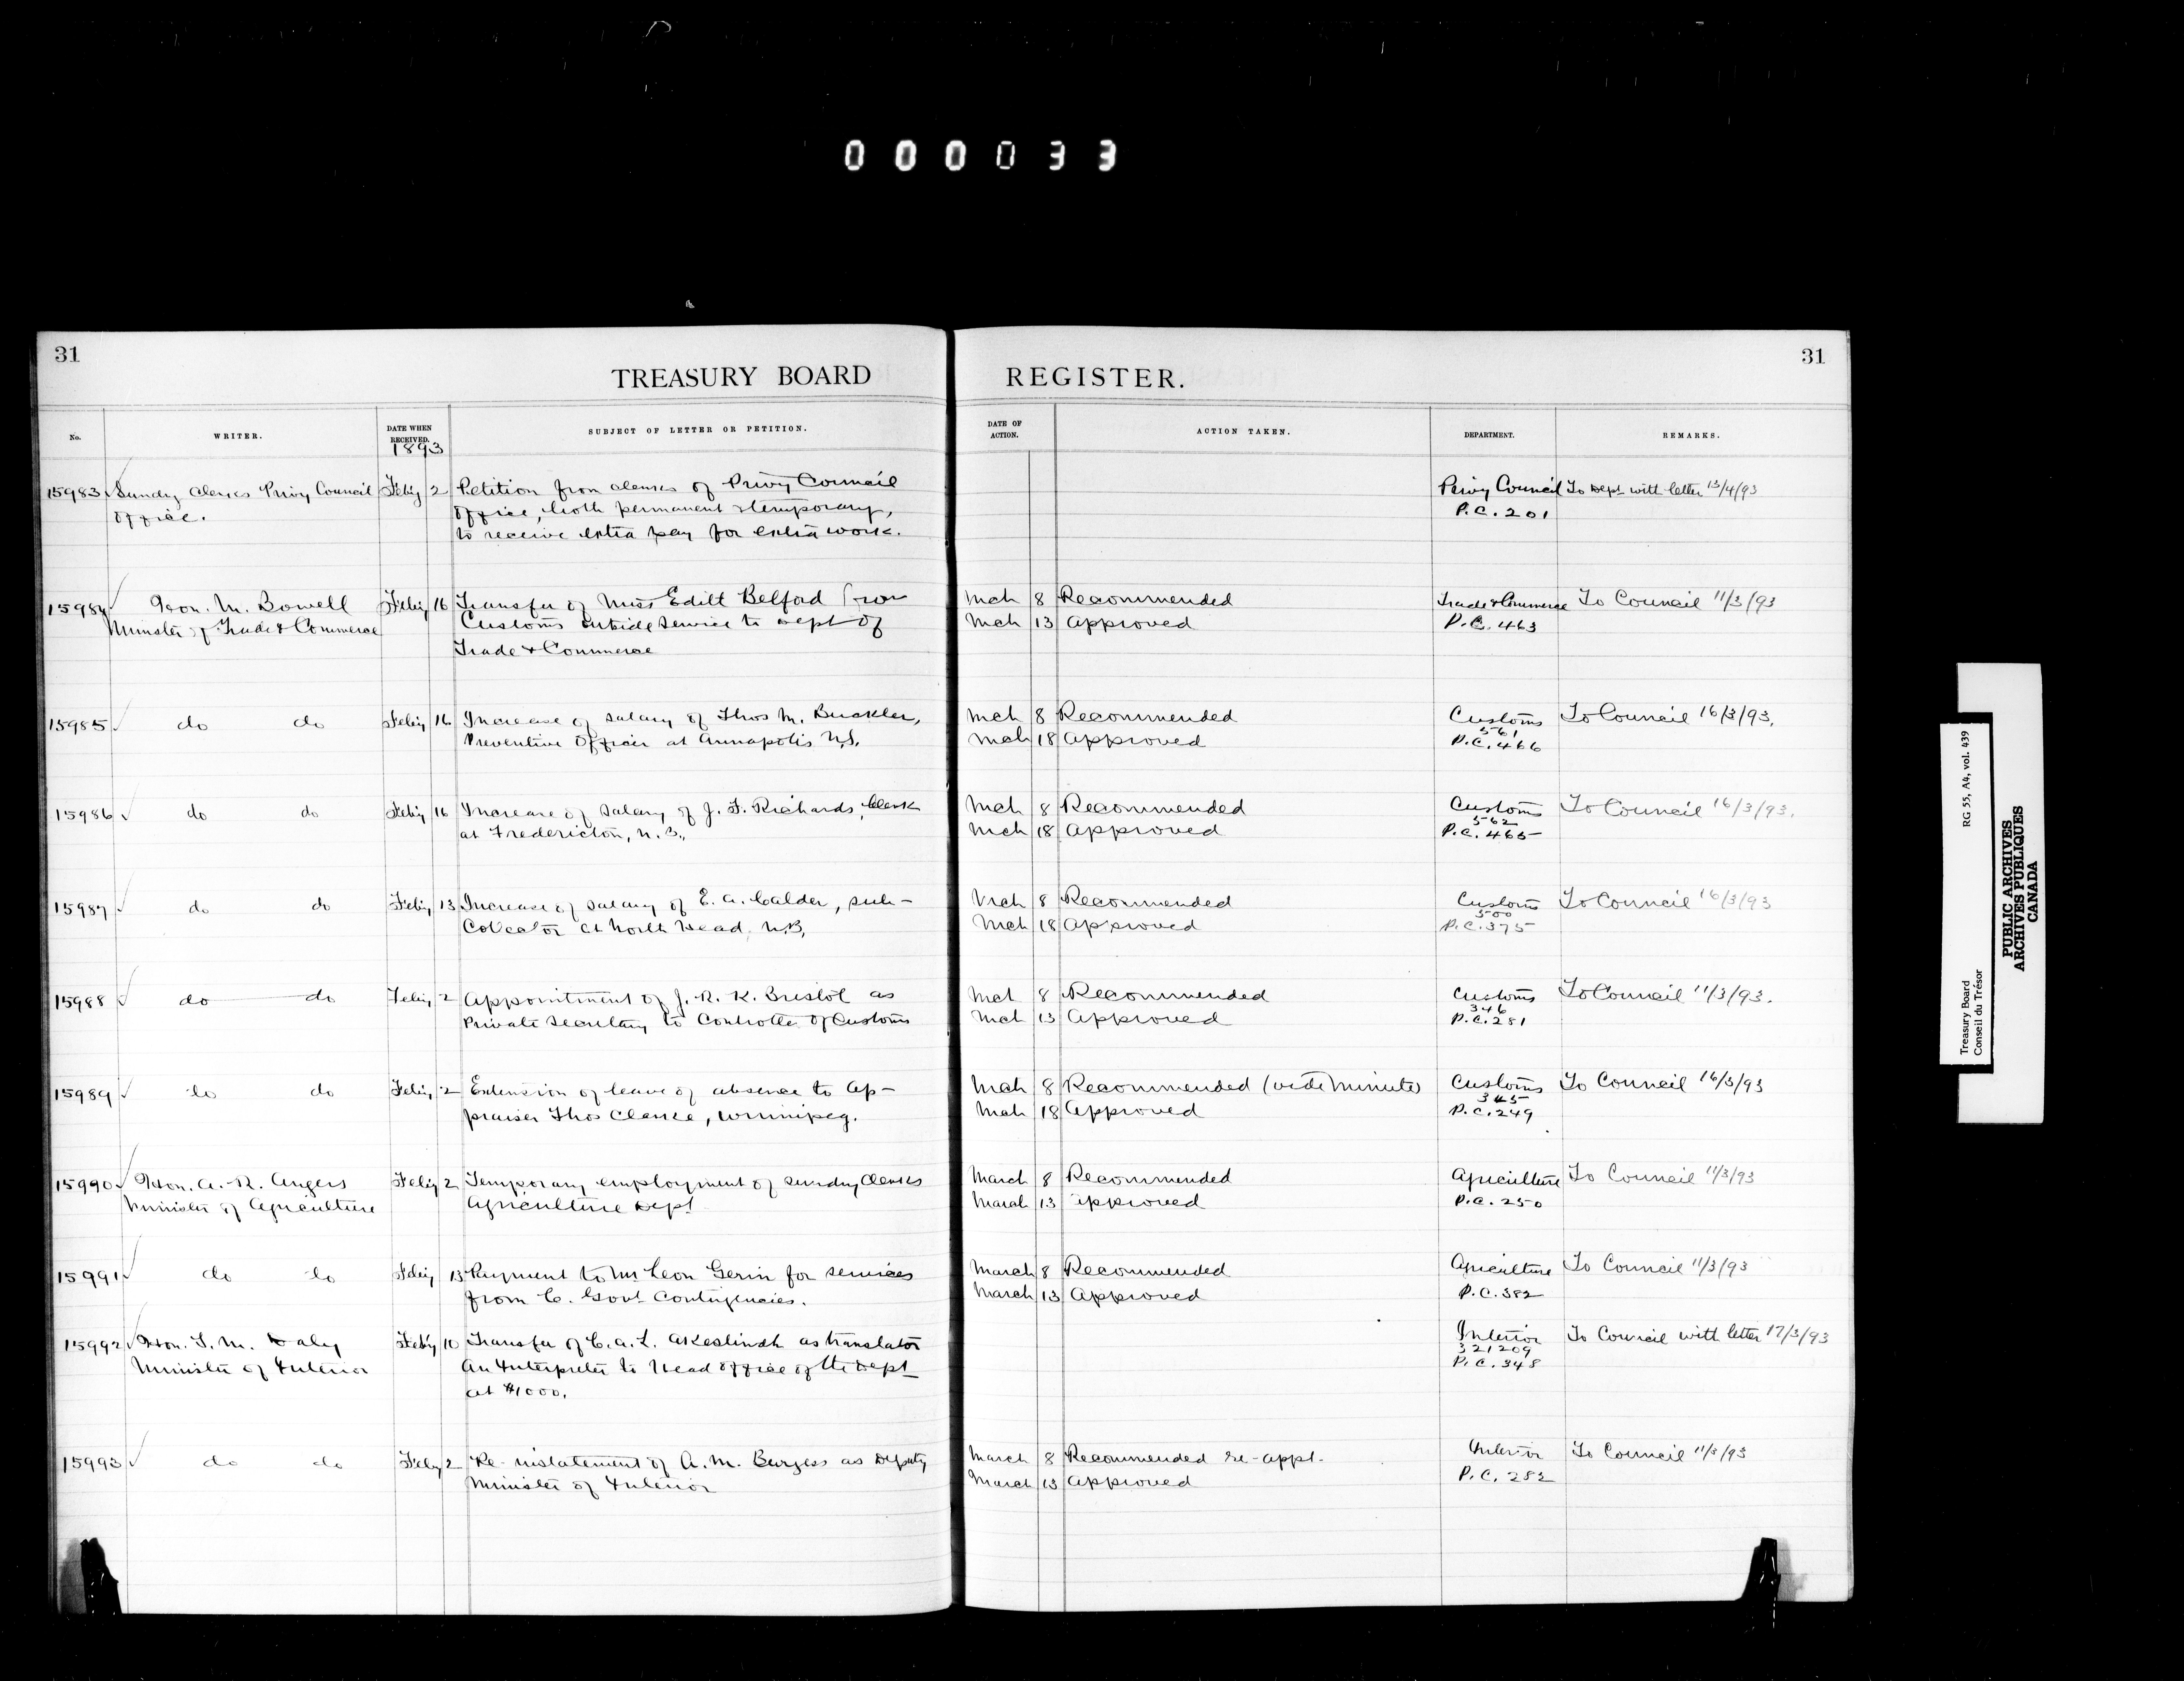 000033
31
31
TREASURY BOARD REGISTER.
No. WRITER. DATE WHEN RECEIVED. SUBJECT OF LETTER OR PETITION. DATE OF ACTION. ACTION TAKEN. DEPARTMENT. REMARKS.
1893
15983 Sundry Clerks Privy Council Feby 2 Petition from clerks of Privy Council Privy Council To Dept with letter 13/4/93
Office. Office, both permanent & temporary, P.C. 201
to receive extra pay for extra work.
15984 Hon. M. Bowell Feby 16 Transfer of Miss Edith Belford from Mch 8 Recommended Trade & Commerce To Council 11/3/93
Minister of Trade & Commerce Customs outside Service to Dept of Mch 13 Approved P.C. 463
Trade & Commerce
15985 do do Feby 16 Increase of salary of Thos M. Buckler, Mch 8 Recommended Customs To Council 16/3/93.
Preventive Officer at Annapolis N.S. Mch 18 Approved 561
P.C. 466
15986 do do Feby 16 Increase of salary of J. F. Richards, Clerk Mch 8 Recommended Customs To Council 16/3/93.
at Fredericton, N.B., Mch 18 Approved 562
P.C. 465
15987 do do Feby 13 Increase of salary of E. A. Calder, sub- Mch 8 Recommended Customs To Council 16/3/93
Collector at North Head, N.B. Mch 18 Approved 500
P.C. 375
15988 do do Feby 2 Appointment of J. R. K. Bristol as Mch 8 Recommended Customs To Council 11/3/93.
Private Secretary to Controller of Customs Mch 13 Approved 346
P.C. 281
15989 do do Feby 2 Extension of leave of absence to Ap- Mch 8 Recommended (vide Minute) Customs To Council 16/3/93
praiser Thos Clarke, Winnipeg. Mch 18 Approved 345
P.C. 249
15990 Hon. A. R. Angers Feby 2 Temporary employment of sundry Clerks March 8 Recommended Agriculture To Council 11/3/93
Minister of Agriculture Agriculture Dept March 13 Approved P.C. 250
15991 do do Feby 13 Payment to Mr Leon Gerin for services March 8 Recommended Agriculture To Council 11/3/93
from C. Govt Contingencies. March 13 Approved P.C. 382
15992 Hon. T. M. Daly Feby 10 Transfer of C. A. L. Akeslindh as translator Interior To Council with letter 17/3/93
Minister of Interior An Interpreter to Head Office of the Dept 321209
at $1000. P.C. 348
15993 do do Feby 2 Re-instatement of A. M. Burgess as Deputy March 8 Recommended re-appt. Interior To Council 11/3/93
Minister of Interior March 13 Approved P.C. 282
Treasury Board RG 55, A4, vol. 439
Conseil du Trésor
PUBLIC ARCHIVES
ARCHIVES PUBLIQUES
CANADA